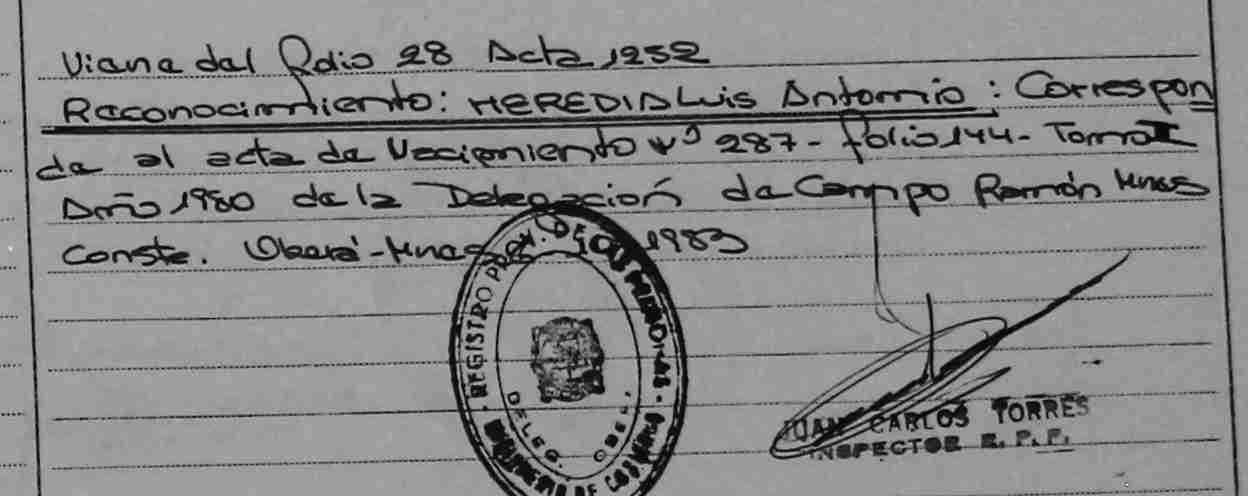 Viene del folio 28 Acta 1252
Reconocimiento: HEREDIA Luis Antonio: Correspon
de al acta de Nacimiento Nº 287- folio 144- Tomo I
Año 1980 de la Delegación de Campo Ramón Mnes
Conste. Oberá-Mnes 1983
REGISTRO PROV. DE LAS PERSONAS
DELEG. OBERÁ
JUAN CARLOS TORRES
INSPECTOR R. P. P.